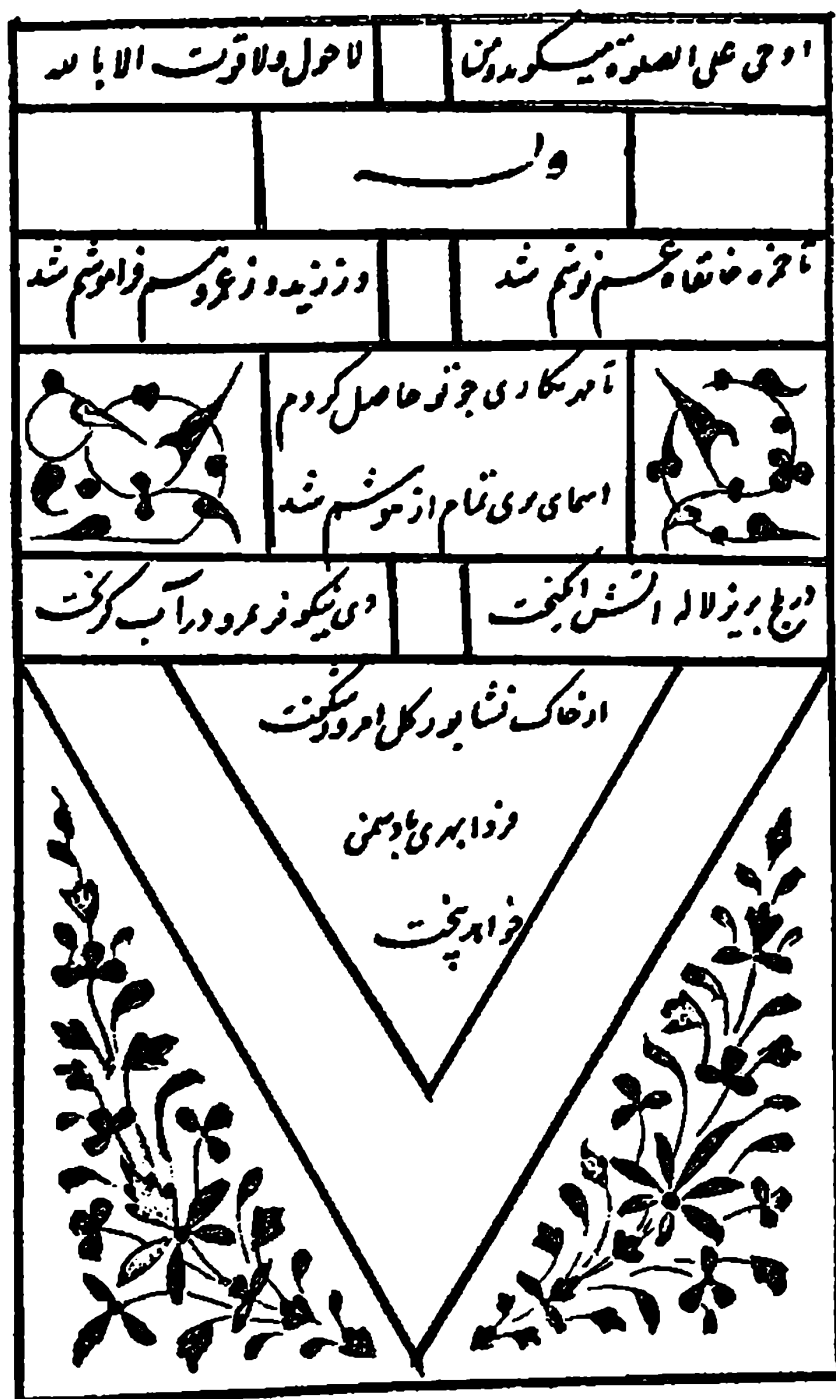 او حی علی الصلوة میگوید و من لا حول ولا قوت الا بالله
وله
تا خانقاه شد وز زید و ز عمرو هم فراموشم شد
تا مهر نگاری چو تو حاصل کردم
اسمای بری تمام از هوشم شد
در بلخ بریر لاله اتش انگیخت دی نیلوفر بمرو در آب گریخت
از خاک نشابور گل امروز شکفت
فردا بهری باد سمن
خواهد بیخت